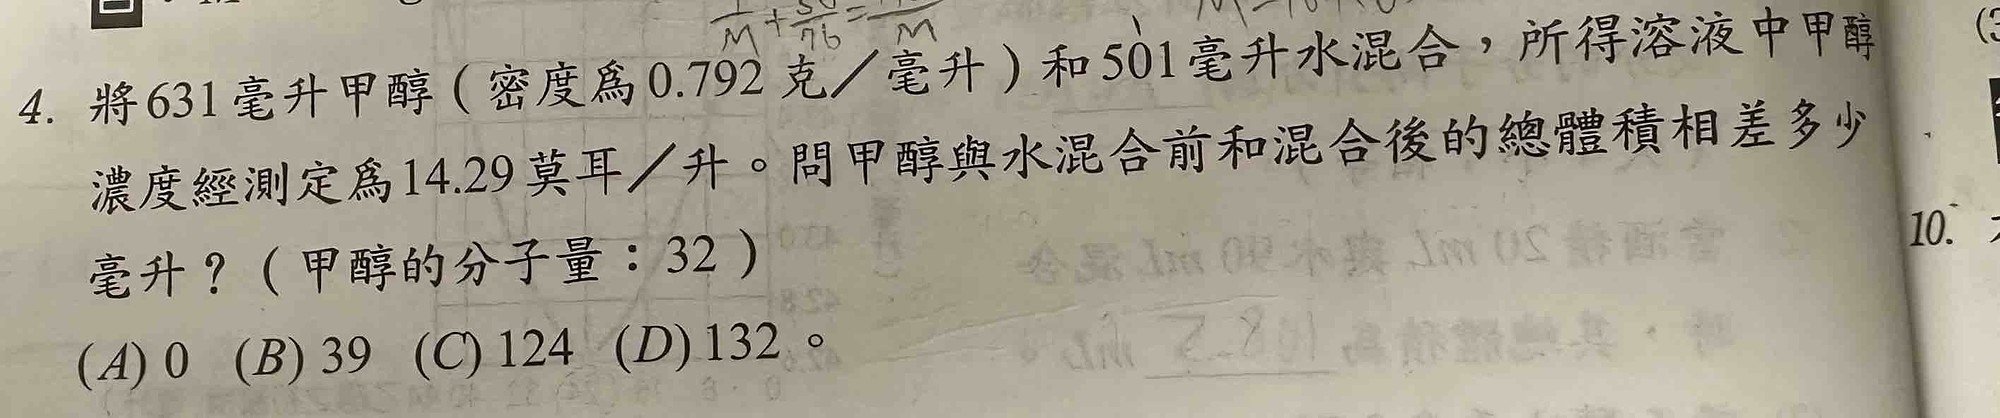 4. 將631毫升甲醇(密度為0.792克/毫升)和501毫升水混合,所得溶液中甲醇
濃度經測定為14.29莫耳/升。問甲醇與水混合前和混合後的總體積相差多少
毫升?(甲醇的分子量:32)
(A) 0 (B) 39 (C) 124 (D) 132。
10.